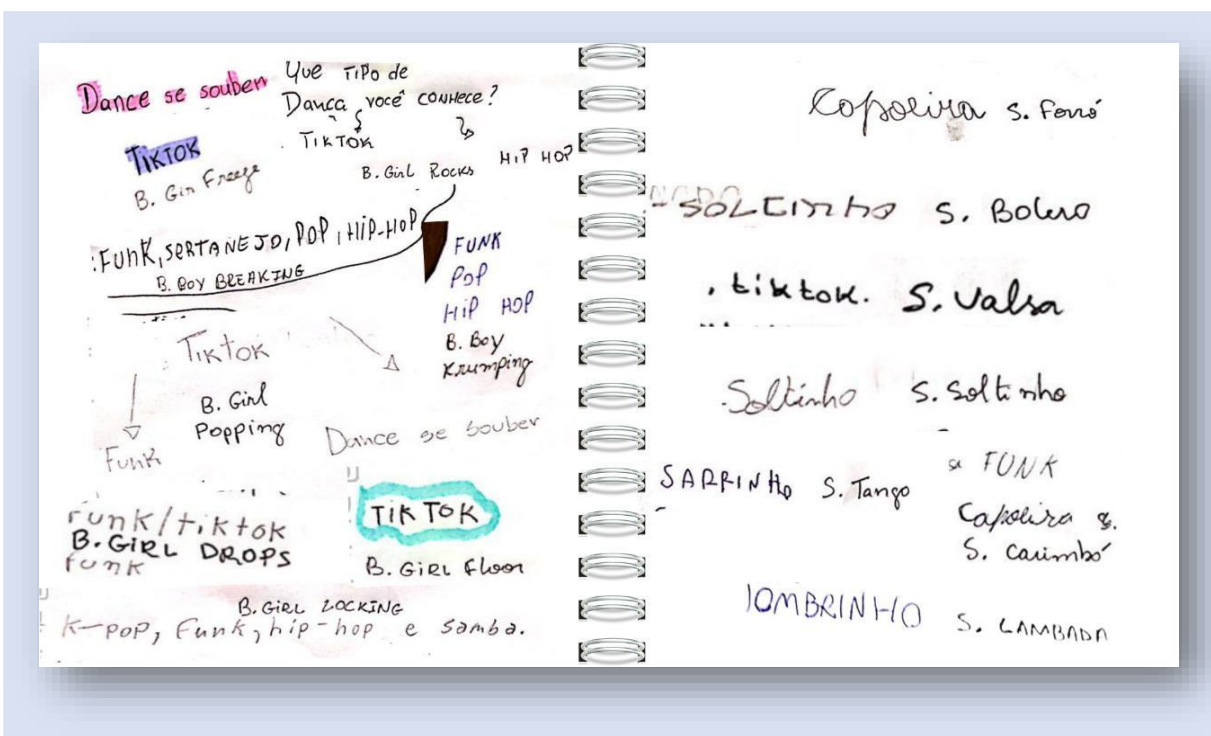 Dance se souber
Que TIPO de
Dança você conhece?
TIKTOK
TIKTOK
B. Girl Rocks
HIP HOP
B. Gin Freeze
FUNK, SERTANEJO, POP, HIP-HOP
B. BOY BREAKING
FUNK
POP
HIP HOP
B. Boy
Krumping
Tiktok
B. Girl
Popping
Funk
Dance se souber
TIKTOK
B. GIRL floor
Funk/tiktok
B. GIRL DROPS
funk
B. GIRL LOCKING
K-POP, Funk, hip-hop e samba.
Capoeira S. Forró
SOLEINHO S. Bolero
. tiktok. S. Valsa
.Soltinho S. Soltinho
SARRINHO S. Tango
FUNK
Capoeira S.
S. Carimbó
IOMBRINHO S. LAMBADA